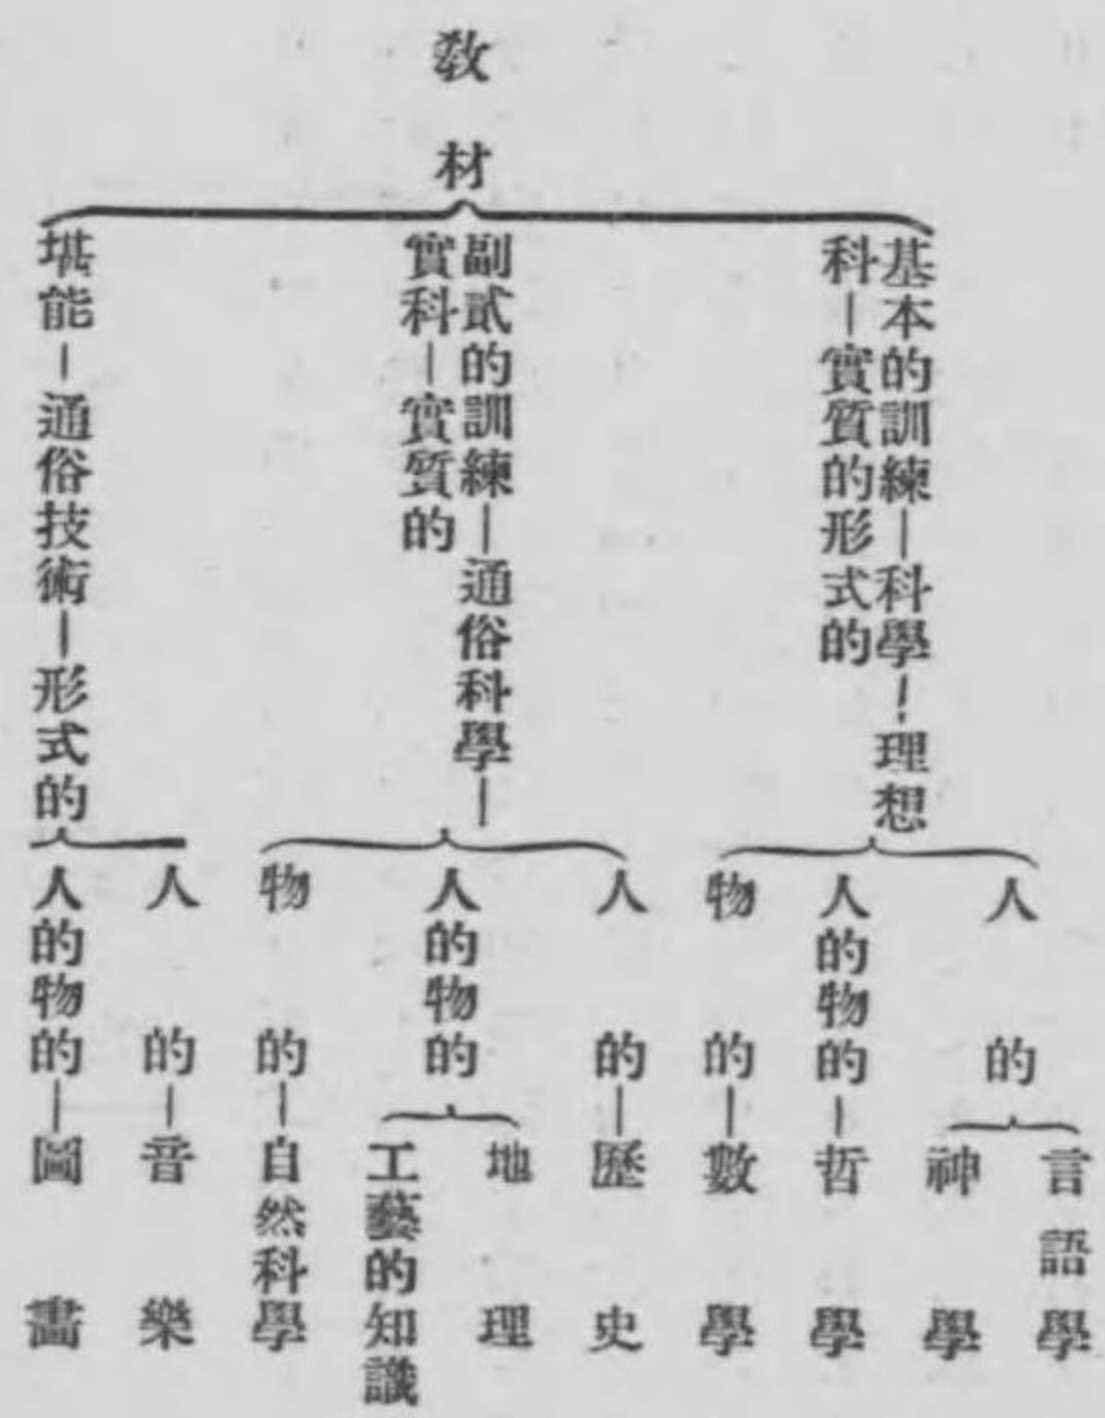 教材
基本的訓練—科學—理想
科—實質的形式的
人的
言語學
神學
人的物的—哲學
物的—數學
副貳的訓練—通俗科學—
實科—實質的
人的—歷史
人的物的
地理
工藝的知識
物的—自然科學
堪能—通俗技術—形式的
人的—音樂
人的物的—圖畫